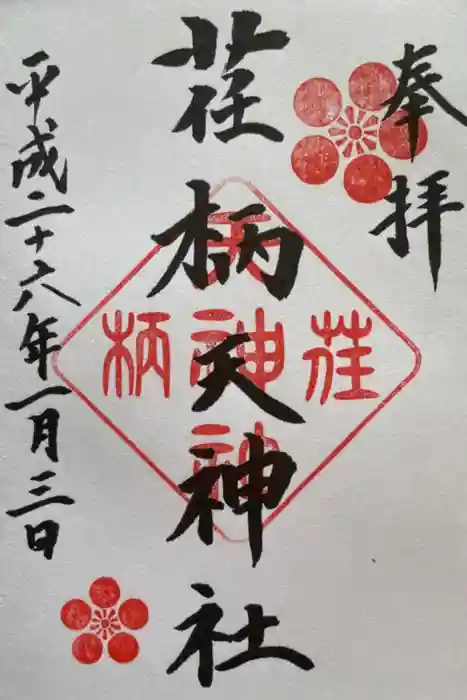 奉拝
荏柄天神社
平成二十六年一月三日
荏
柄
天
神
社